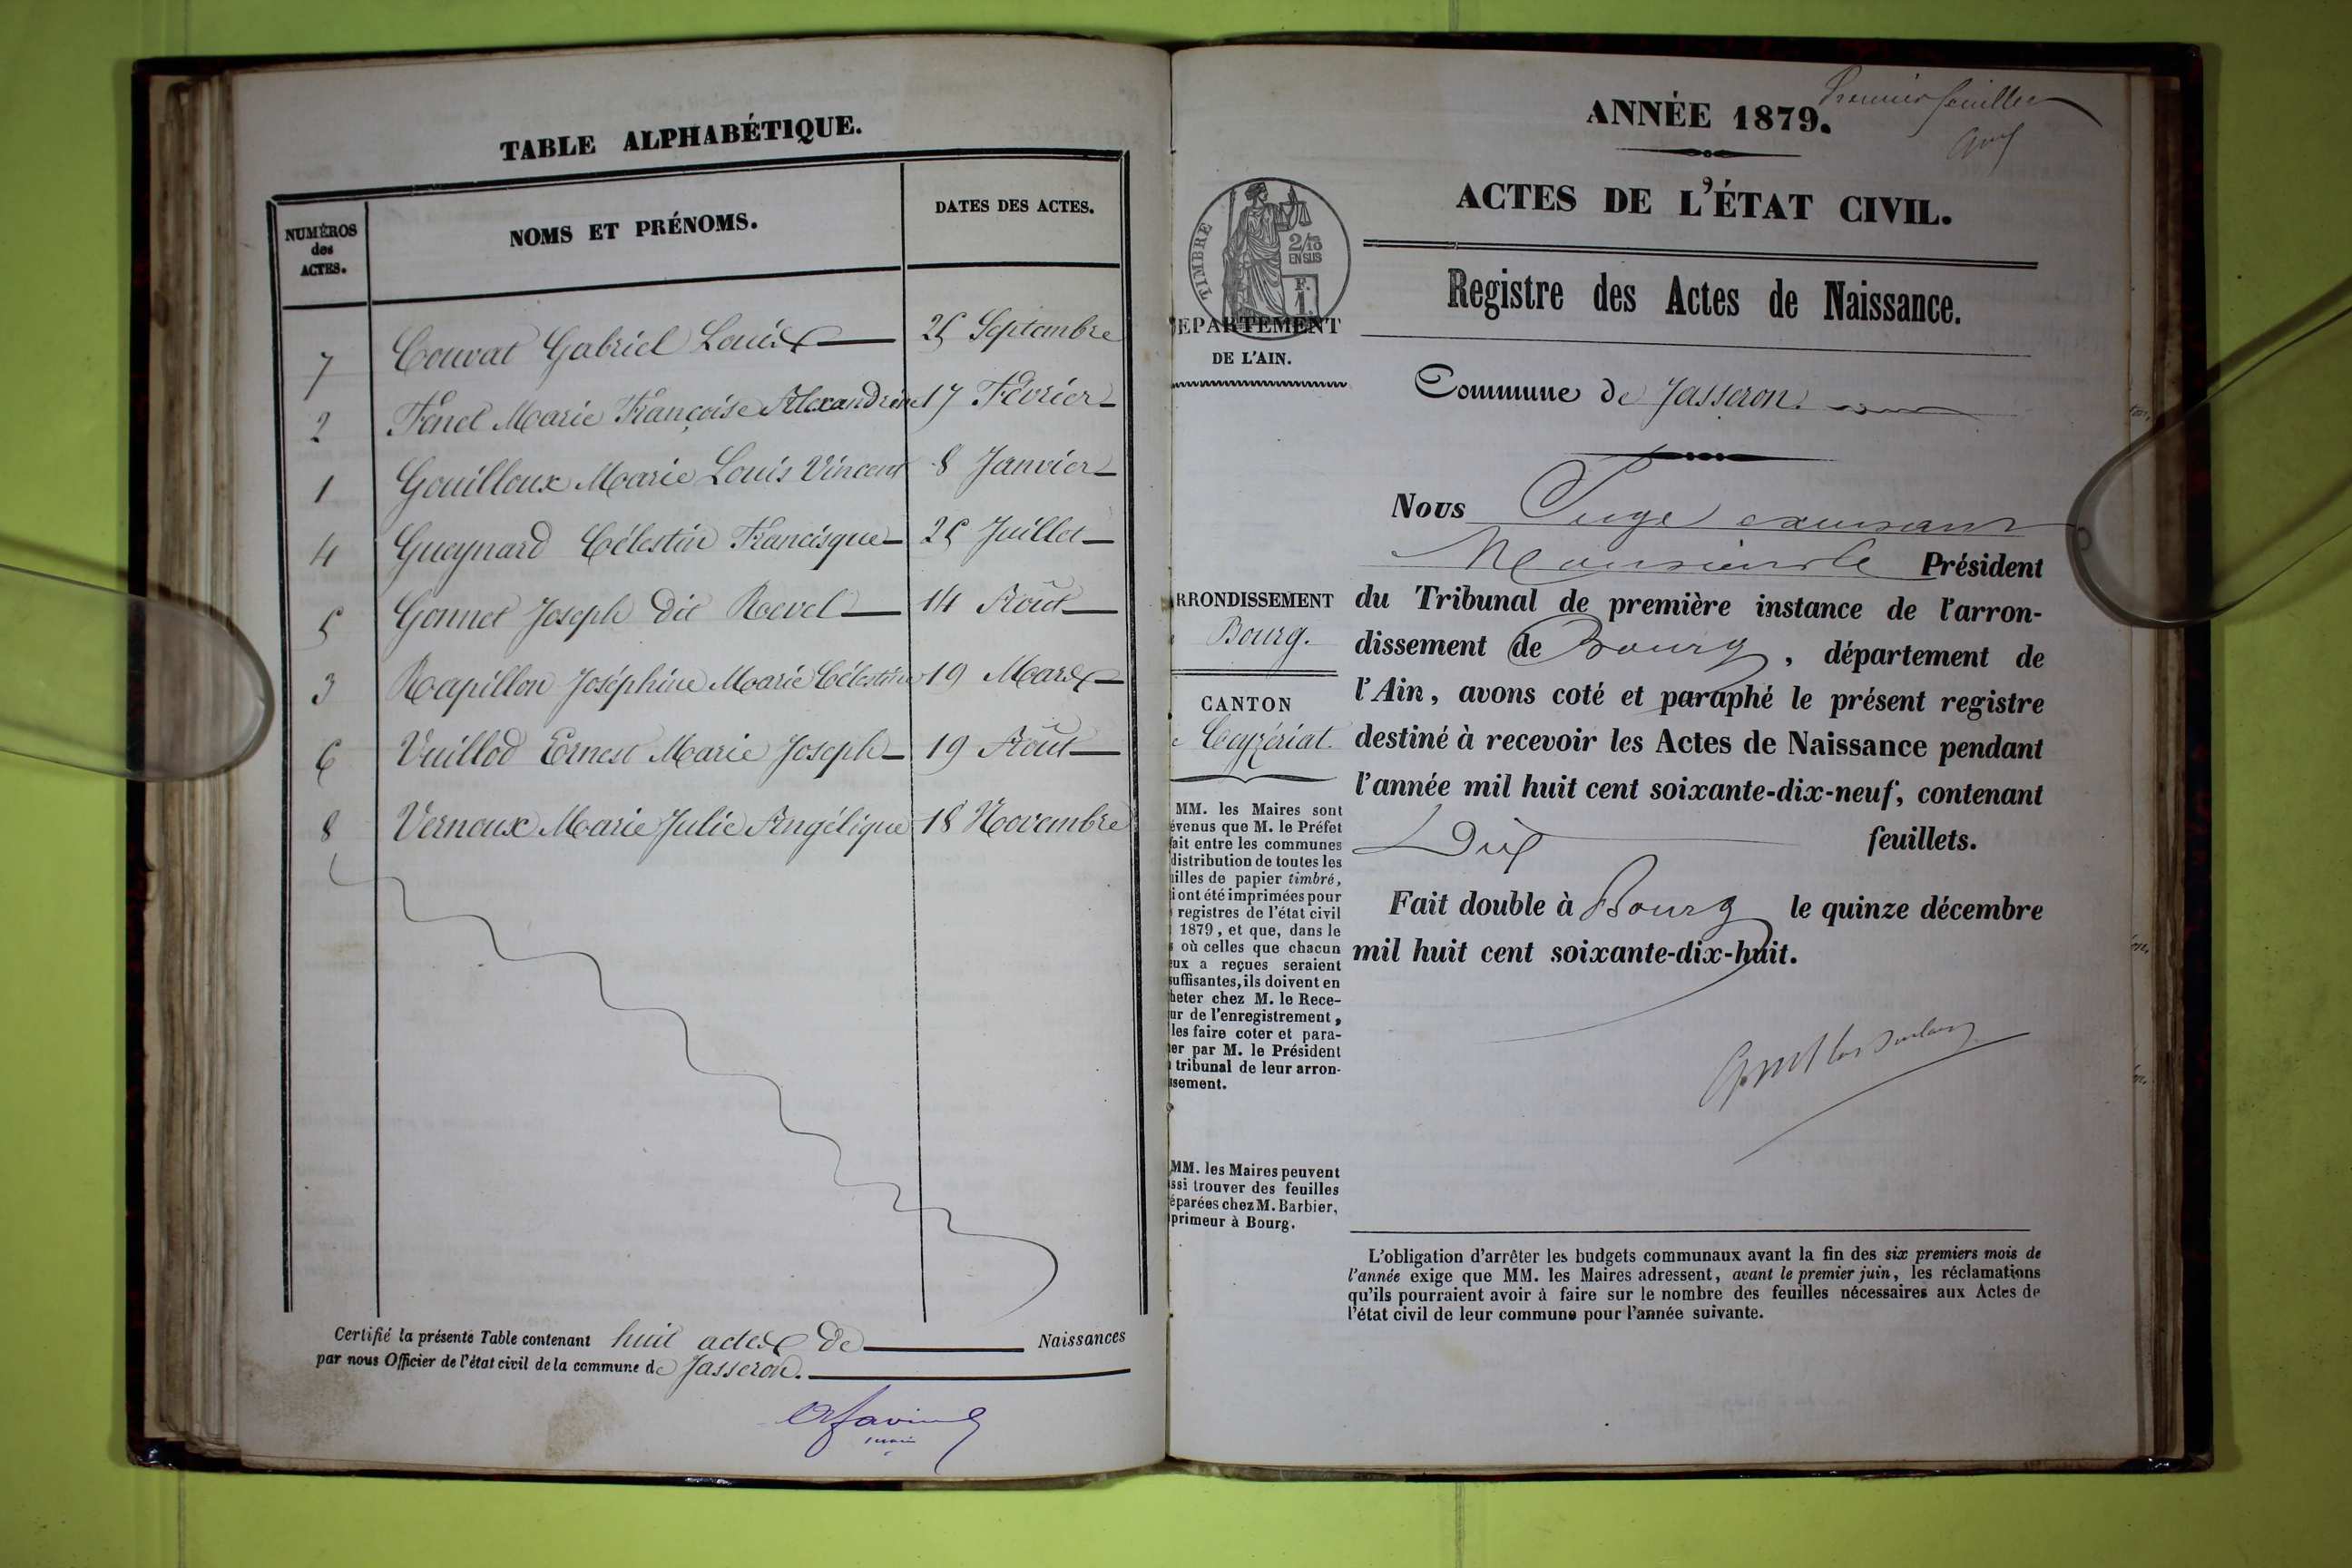 TABLE ALPHABÉTIQUE.
NUMÉROS
des
ACTES.
NOMS ET PRÉNOMS.
DATES DES ACTES.
7 Couvat Gabriel Louis 25 Septembre
2 Fenel Marie Françoise Alexandrine 17 Février
1 Gouilloux Marie Louis Vincent 8 Janvier
4 Gueynard Célestin Francisque 25 Juillet
5 Gonnet Joseph dit Revel 14 Août
3 Rapillon Joséphine Marie Célestine 19 Mars
6 Vuillod Ernest Marie Joseph 19 Août
8 Vernoux Marie Julie Angélique 18 Novembre
Certifié la présente Table contenant huit actes de Naissances
par nous Officier de l'état civil de la commune de Jasseron.
Premier feuillet
ANNÉE 1879.
ACTES DE L'ÉTAT CIVIL.
Registre des Actes de Naissance.
Commune de Jasseron.
TIMBRE
2/10
EN SUS
F.
1.
EPARTEMENT
DE L'AIN.
RRONDISSEMENT
Bourg.
CANTON
Ceyzériat.
MM. les Maires sont
évenus que M. le Préfet
fait entre les communes
distribution de toutes les
uilles de papier timbré,
i ont été imprimées pour
registres de l'état civil
1879, et que, dans le
s où celles que chacun
eux a reçues seraient
suffisantes, ils doivent en
heter chez M. le Rece-
ur de l'enregistrement,
les faire coter et para-
er par M. le Président
tribunal de leur arron-
ssement.
MM. les Maires peuvent
ssi trouver des feuilles
éparées chez M. Barbier,
primeur à Bourg.
Nous Juge
Monsieur le Président
du Tribunal de première instance de l'arron-
dissement de Bourg, département de
l'Ain, avons coté et paraphé le présent registre
destiné à recevoir les Actes de Naissance pendant
l'année mil huit cent soixante-dix-neuf, contenant
Dix feuillets.
Fait double à Bourg le quinze décembre
mil huit cent soixante-dix-huit.
L'obligation d'arrêter les budgets communaux avant la fin des six premiers mois de
l'année exige que MM. les Maires adressent, avant le premier juin, les réclamations
qu'ils pourraient avoir à faire sur le nombre des feuilles nécessaires aux Actes de
l'état civil de leur commune pour l'année suivante.